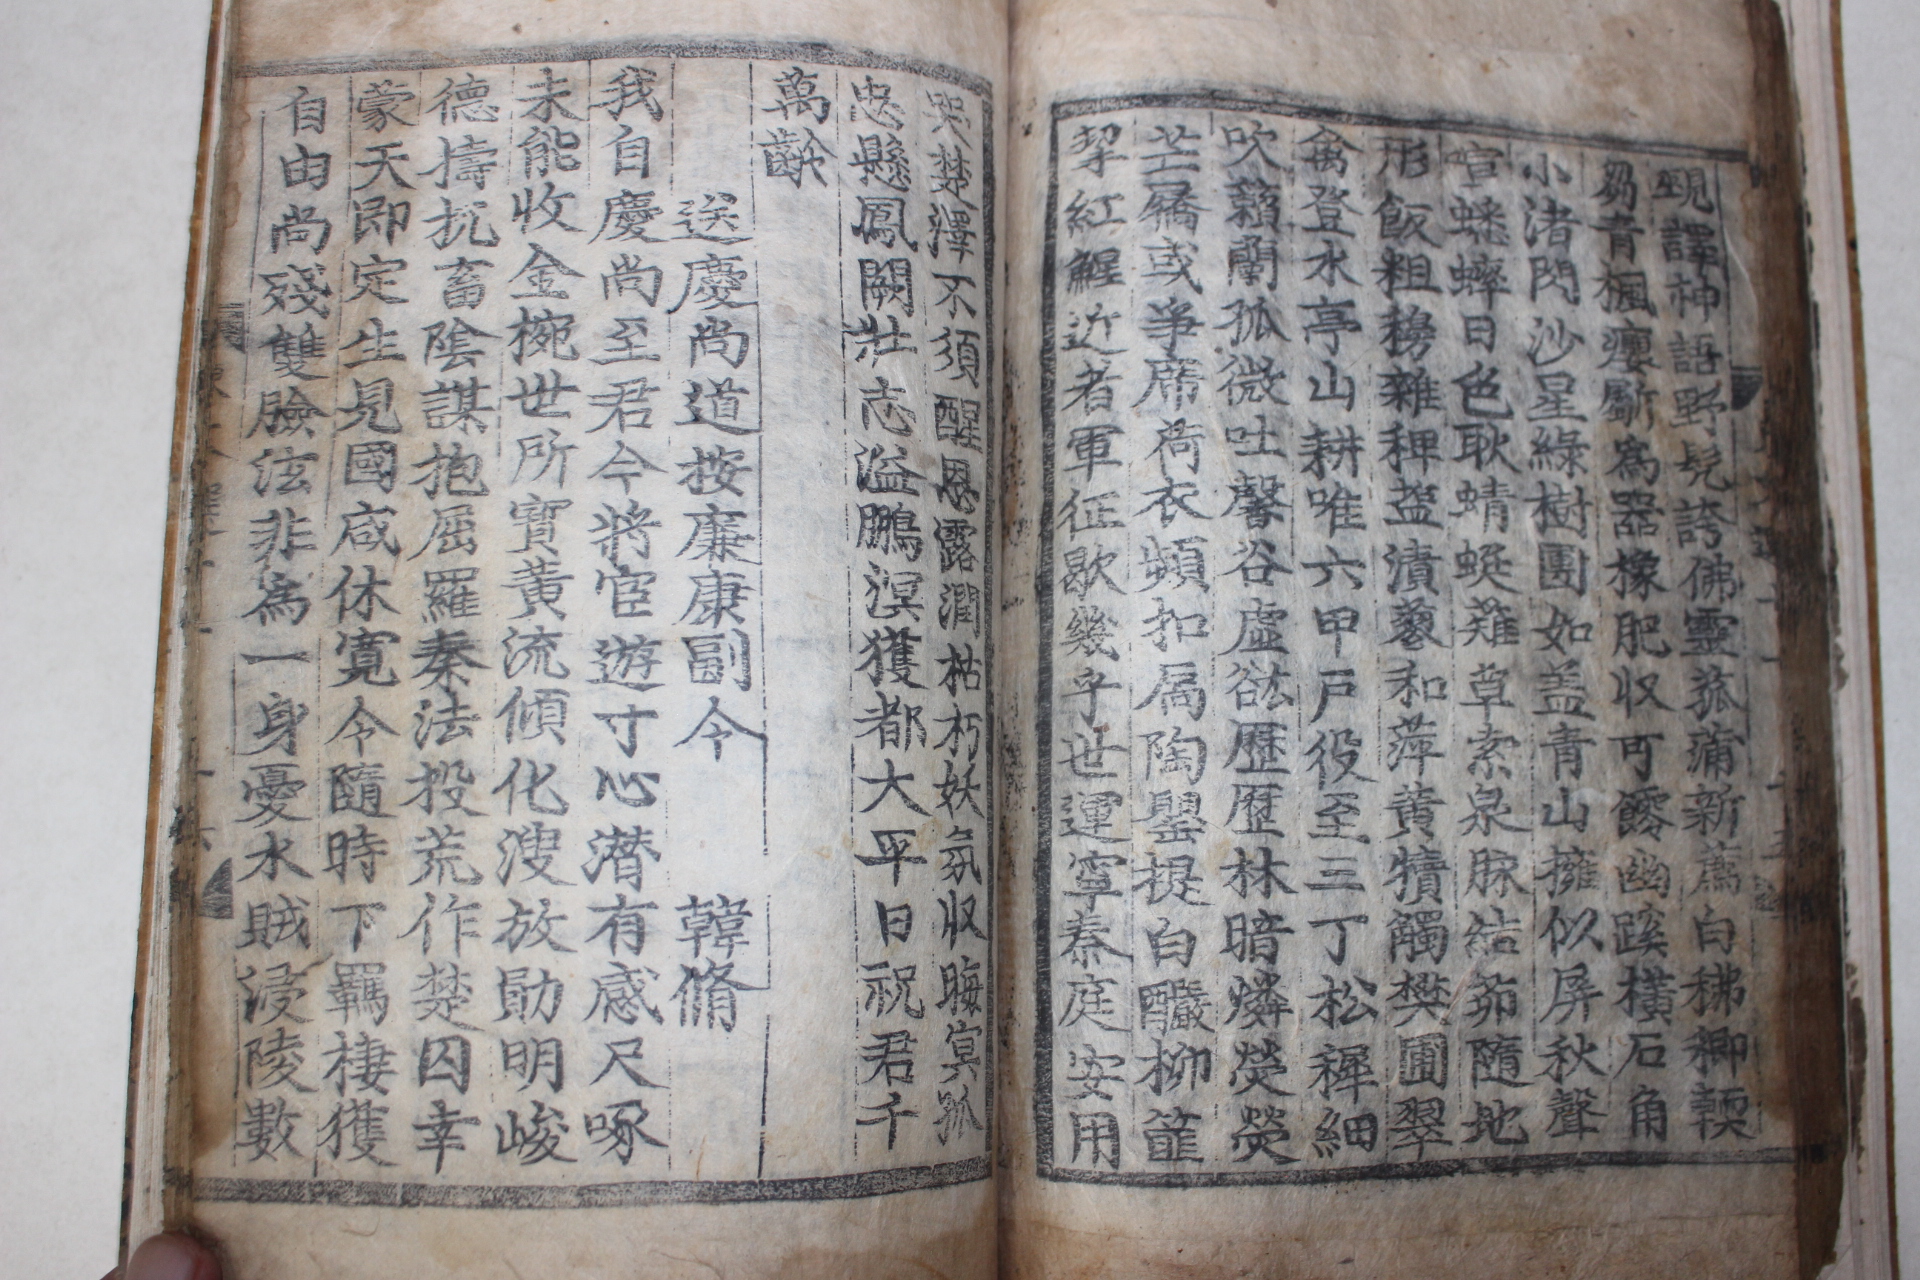 覡譯神語野髡誇佛靈菰蒲新薦白穗稗輭
芻青楓癭斸為器橡肥収可霧幽蹊橫石角
小渚閃沙星綠樹團如盖青山擁似屏秋聲
喧蟋蟀日色耿蜻蜓薙草索泉脉結茆隨地
形飯粗䅭雜稗葅漬蓼和萍黃犢觸樊圃翠
禽登水亭山耕唯六甲戶役至三丁松穉細
吹籟蘭孤微吐馨谷虛欲歷歷林暗燐熒熒
芒屩或爭席荷衣頻扣扃陶罌提白釅柳䉛
挈紅鯹近者軍征歇幾乎世運寧秦庭安用
哭楚澤不須醒恩露潤枯朽妖氛収晦冥孤
忠懸鳳闕壯志溢鵬溟獲都大平日祝君千
萬齡
送慶尚道按廉康副令 韓脩
我自慶尚至君今將宦遊寸心潛有感尺啄
未能收金椀世所寶黃流傾化溲放勛明峻
德擣扤畜陰謀抱屈羅秦法投荒作楚囚幸
蒙天即定生見國咸休寬令隨時下羈棲獲
自由尚殘雙臉泫非為一身憂水賊浸陵數